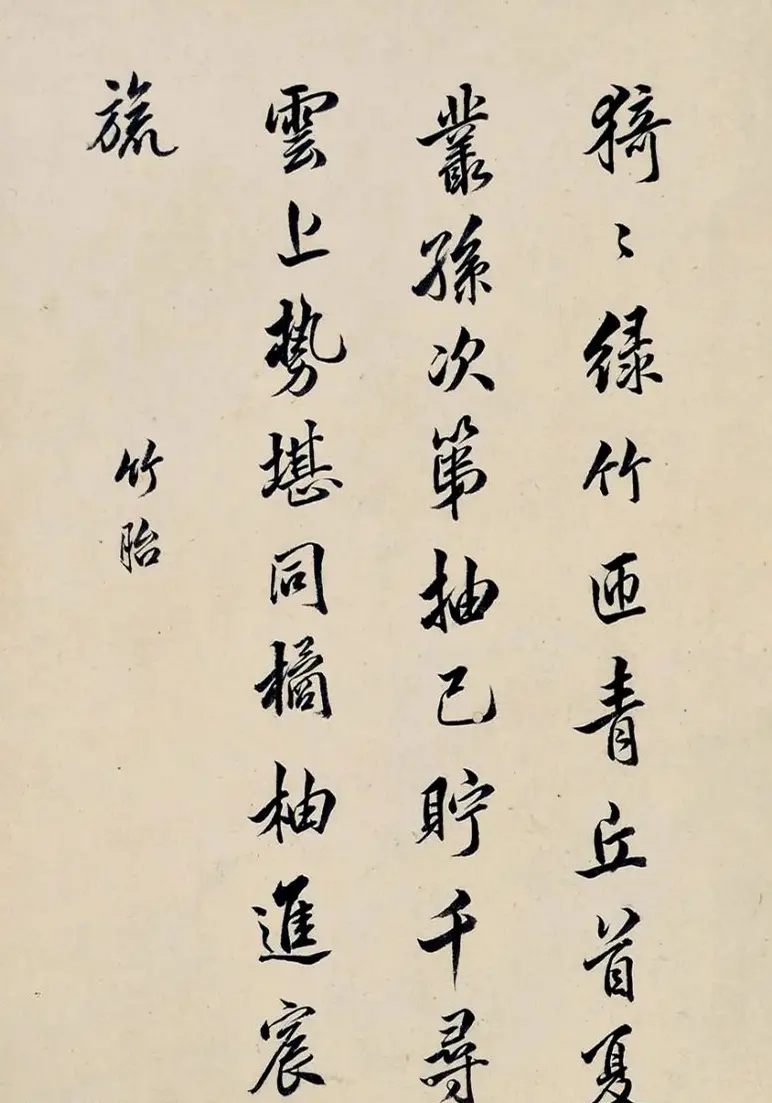 猗〻綠竹匝青丘首夏
叢孫次第抽已貯千尋
雲上勢堪同橘柚進宸
旒
竹胎